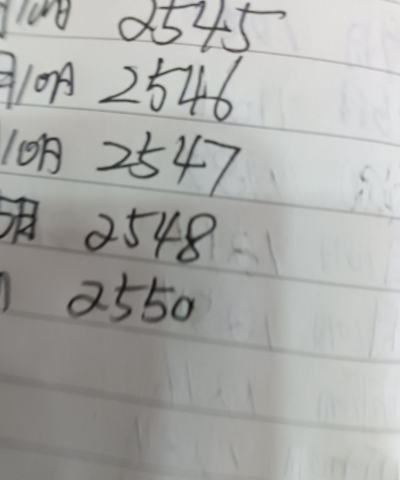 月10月 2545
月10月 2546
10月 2547
5月 2548
2550